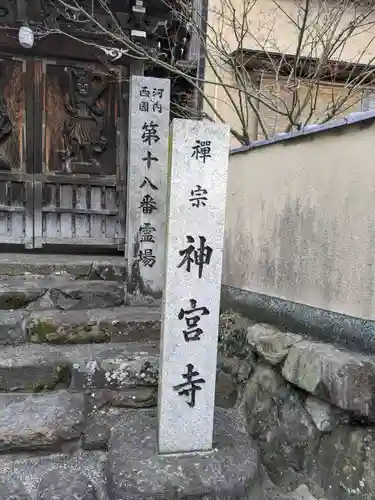 河内
西国
第十八番霊場
禅宗
神宮寺